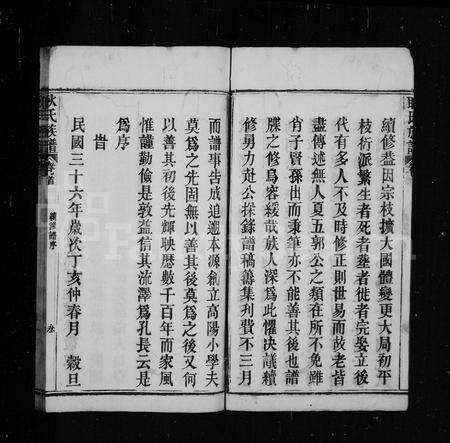 續修蓋因宗枝擴大國體變更大局初平
枝衍派繁生者死者葬者徙者完娶立後
代有多人不及時修正則世易而故老皆
盡傳述無人夏五郭公之類在所不免雖
肖子賢孫出而秉筆亦不能善其後也譜
牒之修烏容緩哉族人深爲此懼决議續
修勇力赴公採錄譜稿善集刋費不三月
而譜事告成追遡本源創立高陽小學夫
莫爲之先固無以善其後莫爲之後又何
以善其初後先輝映歷數千百年而家風
惟謹勤儉是敦益信其流澤爲孔長云是
爲序
旹
民國三十六年歲次丁亥仲春月 穀旦
氏族譜
卷首
續修譜序
叁